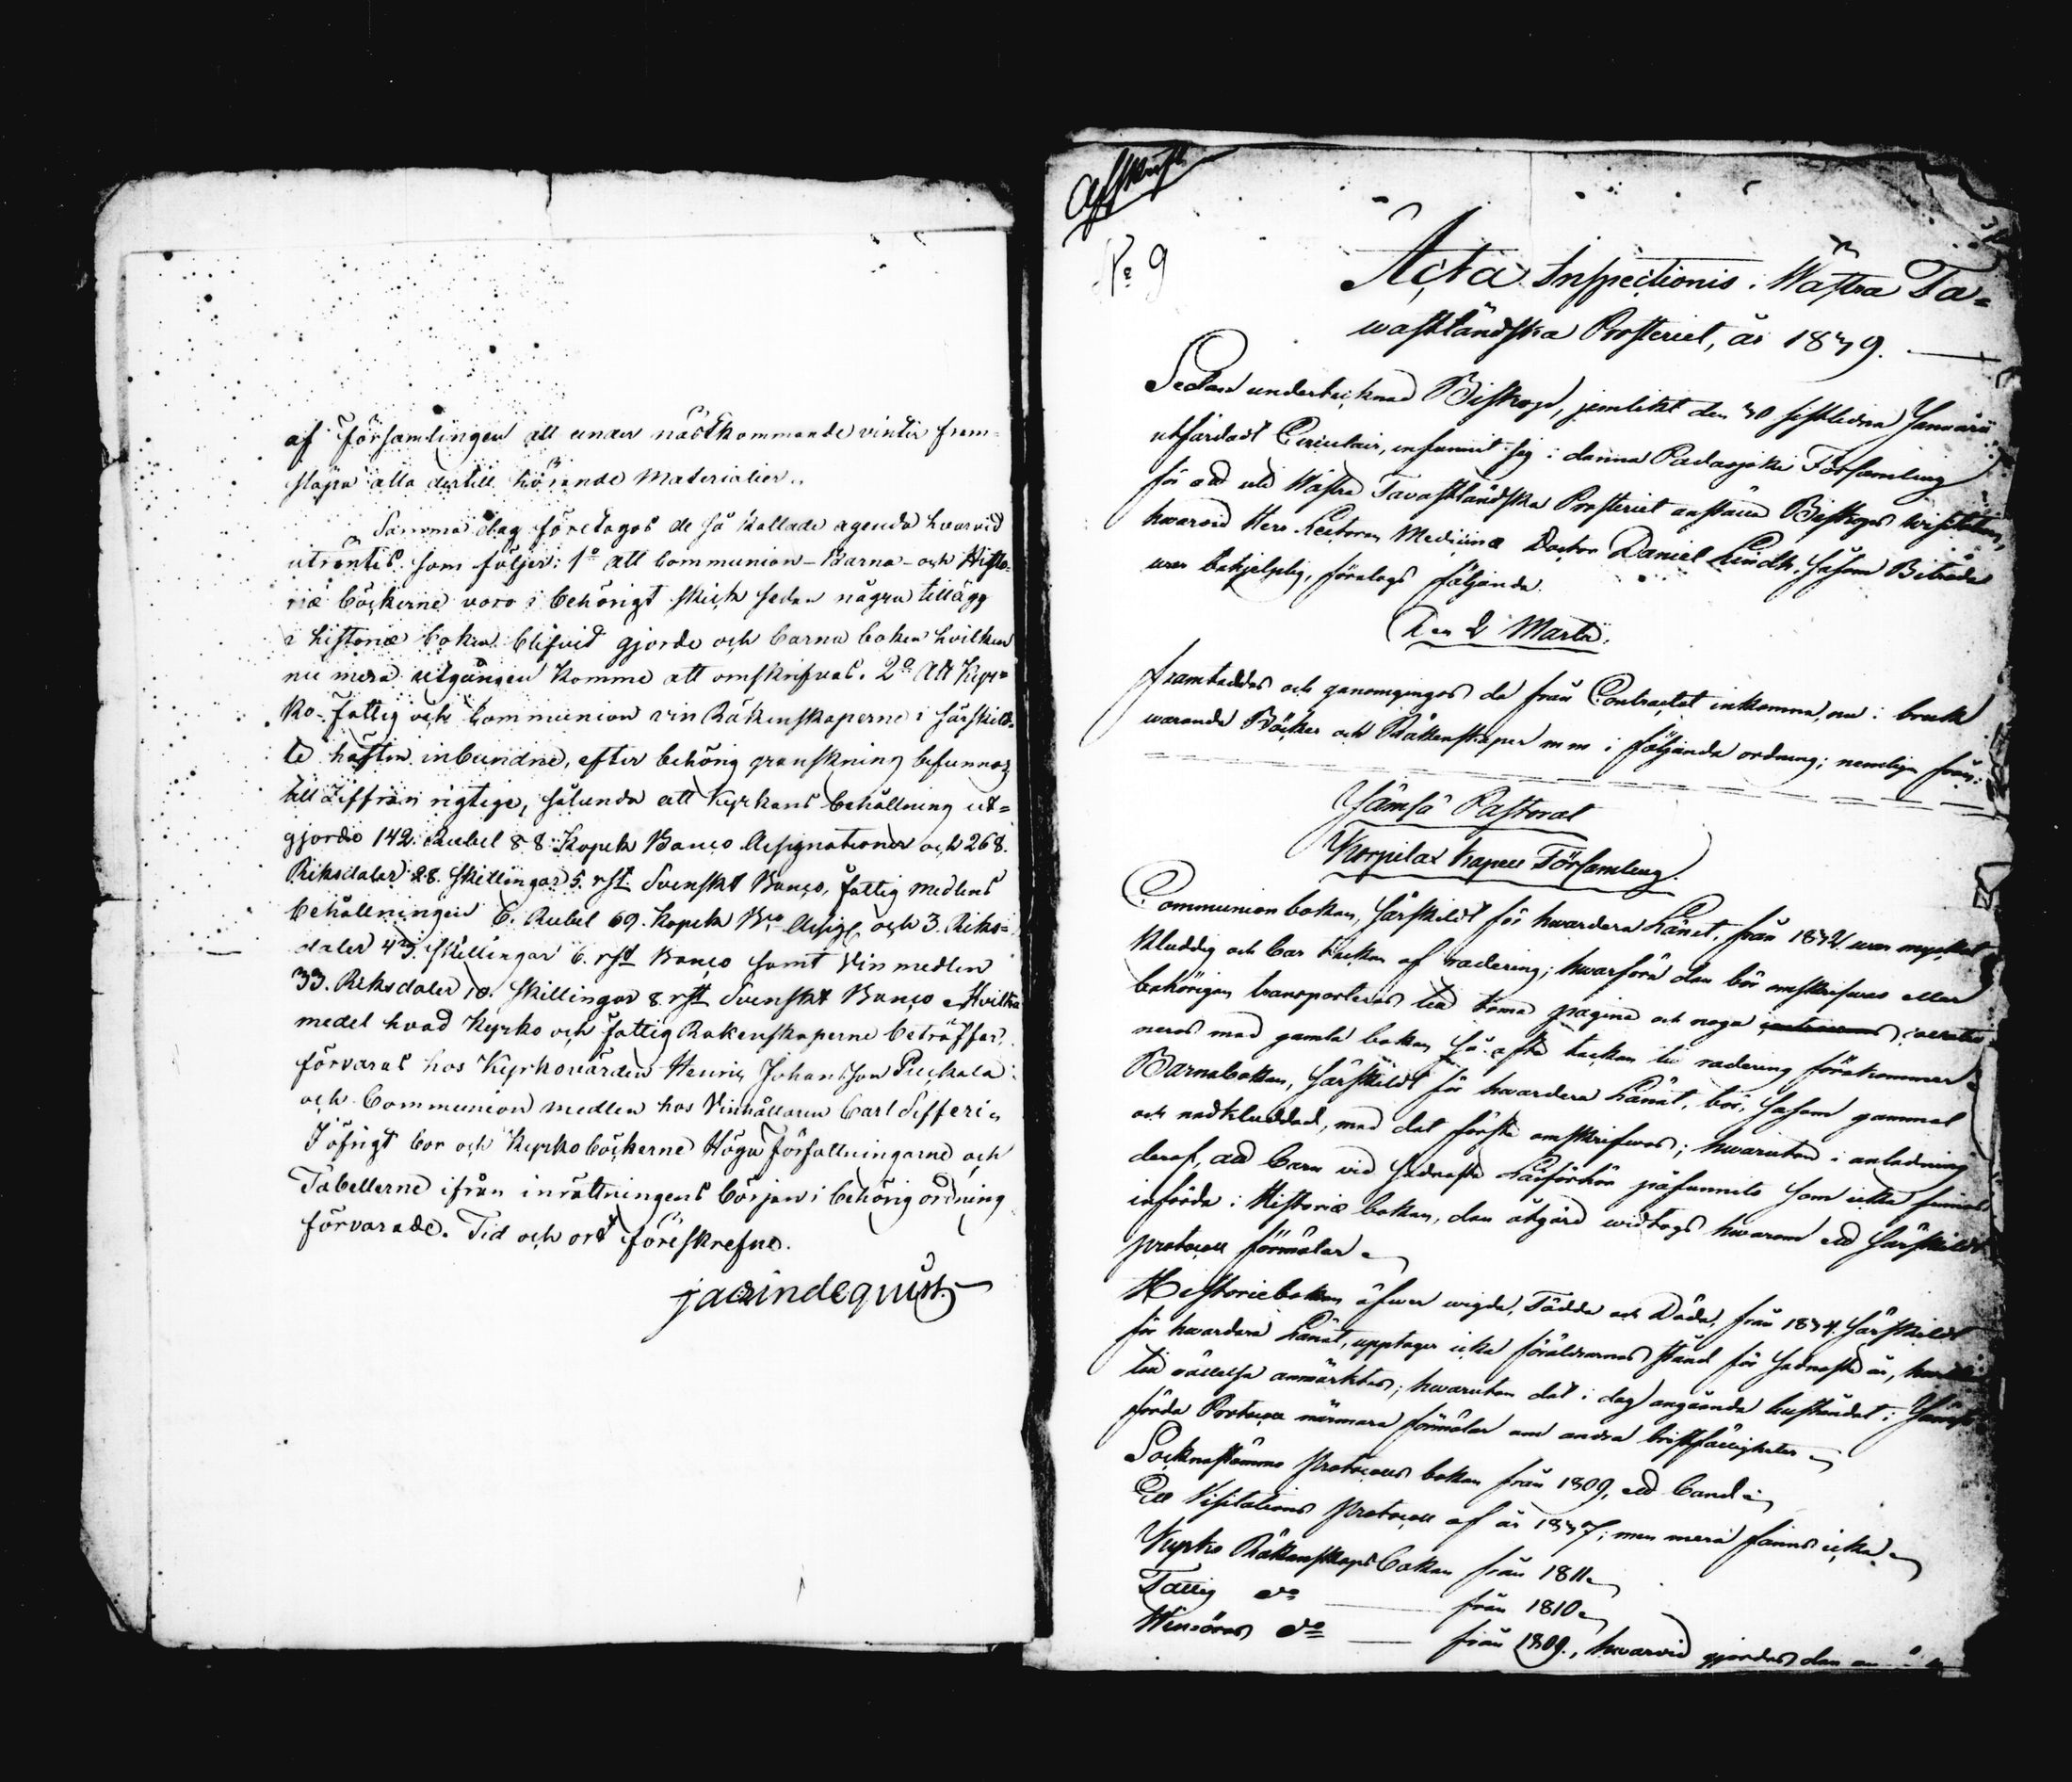 af Församlingen att under nästkommande vinter fram-
släpa alla dertill hörande Materialier.
Samma dag företogos de så kallade agenda hvarvid
utröntes som följer: 1o att Communion- Barna- och Histo-
riæ böckerne voro i behörigt skick sedan några tillägg
i historiæ boken blifvit gjorde och barna boken hvilken
nu mera utgången komme att omskrifvas. 2o Att Kyr-
ko- Fattig och Communion vin Räkenskaperne i särskild-
te häften inbundne, efter behörig granskning befunnos
till Ziffran rigtige, sålunda att Kyrkans behållning ut-
gjorde 142. Rubel 88 Kopek Banco Assignationer och 268.
Riksdaler 28. Skillingar 5. rst. Svenskt Banco, fattig medlens
behållningen 6. Rubel 69. Kopek Bco Assigr och 3. Riks-
daler 43. Skillingar 6. rst Banco samt Vin medlen
33. Riksdaler 10. Skillingar 8 rst Svenskt Banco Hvilka
medel hvad Kyrko och fattig Rakenskaperne beträffar,
förvaras hos Kyrkovärden Henric Johansson Puckala
och Communion medlen hos Vinhållaren Carl Sifferi
I öfrigt bor och Kyrkoböckerne Höga Författningarne och
Tabellerne ifrån inrättningens början i behörig ordning
förvarade. Tid och ort föreskrefne.
Afskrift
No 9
Acta Inspectionis i Wästra Ta-
wastländska Prosteriet, år 1839.
Sedan undertecknad Biskop, jemlikt den 30 sistledne Januarii
utfärdadt Circulair, infunnit sig i denna Padasjoki Församling
för att uti Wästra Tavastländska Prosteriet anställa Biskops visitation,
hwarvid Herr Lectorn Medicinæ Doctor Daniel Lindh, såsom Biträde
war behjelplig, företogs följande.
Den 2 Martii.
framteddes och genomgingos de från Contractet inkomna, nu i bruk
warande Böcker och Räkenskaper m m i följande ordning; nemligen från:
Jämsä Pastorat
Korpilax Kapell Församling.
Communionboken, särskildt för hwardera Länet, från 1832 war mycket
kluddig och bar tecken af radering; hwarföre den bör omskrifwas eller
behörigen transporteras till toma pagina och noga
med gamla boken så ofta tecken till radering förekommer
Barnaboken, särskildt för hwardera Länet, bör, såsom gammal
och nedkluddad, med det första omskrifwas; hwarutom i anledning
deraf, att barn vid sednaste Läsförhör påfunnits som icke finnas
införda i Historiæ boken, den åtgärd widtogs hwarom ett särskildt
protocoll förmälar
Historieboken öfwer wigda, Födda och Döda, från 1834 särskildt
för hwardera Länet, upptager icke föräldrarnes stånd för sednaste år,
till rättelse anmärktes; hwarutom det i dag angående
förda Protocoll närmare förmälar om andra bristfälligheter
Socknestämmo Protocolls boken från 1809, ett band
Ett Visitations Protocoll af år 1837; men mera finns icke
Kyrko Räkenskaps boken från 1811
Fattig do från 1810
do från 1809, hwarvid gjordes den